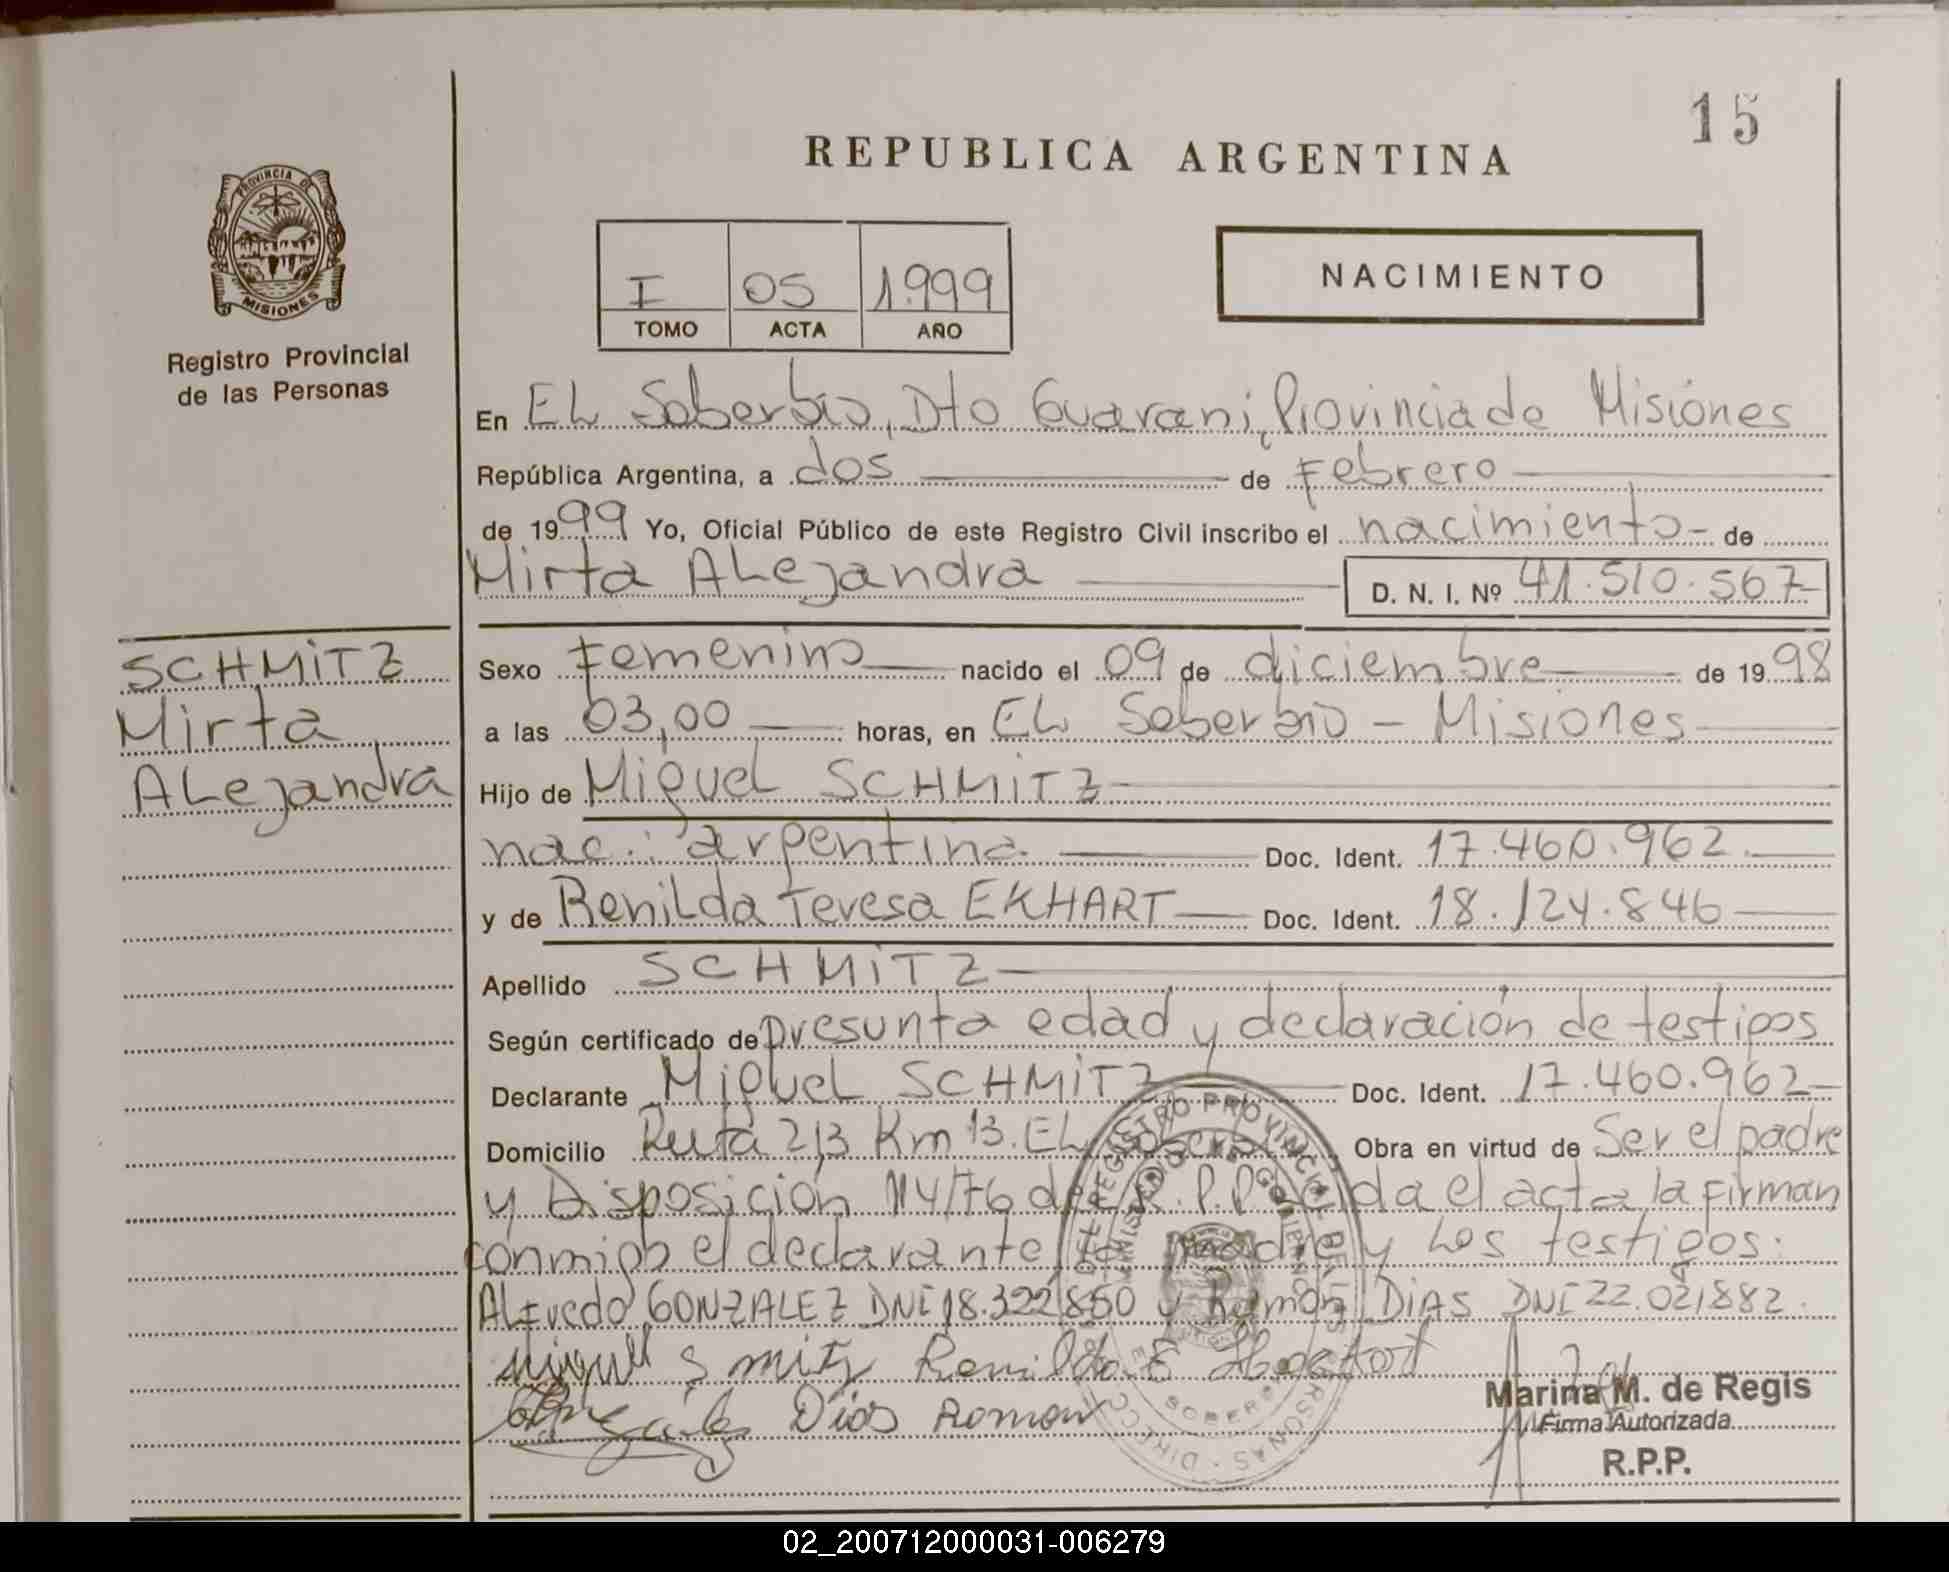 15
REPUBLICA ARGENTINA
PROVINCIA DE
MISIONES
Registro Provincial
de las Personas
I 05 1.999
TOMO ACTA AÑO
NACIMIENTO
En EL Soberbio, Dto Guarani, Provincia de Misiones
República Argentina, a dos de Febrero
de 1999 Yo, Oficial Público de este Registro Civil inscribo el nacimiento - de
Mirta ALejandra D. N. I. Nº 41.510.567
SCHMITZ
Mirta
ALejandra
Sexo Femenino nacido el 09 de diciembre de 1998
a las 03,00 horas, en EL Soberbio - Misiones
Hijo de Miguel SCHMITZ
nac.: argentina. Doc. Ident. 17.460.962.
y de Renilda Teresa EKHART Doc. Ident. 18.124.846
Apellido SCHMITZ
Según certificado de presunta edad y declaración de testigos
Declarante Miguel SCHMITZ Doc. Ident. 17.460.962
Domicilio Ruta 213 Km 13. EL Soberbio Obra en virtud de Ser el padre
y Disposición 114/76 del R.P.P. da el acta la firman
conmigo el declarante la madre y Los testigos:
ALfredo GONZALEZ DNI 18.322.850 y Ramón DIAS DNI 22.021.882.
Miguel Smitz Renilda
Dias Roman
Marina M. de Regis
Firma Autorizada
R.P.P.
02_200712000031-006279